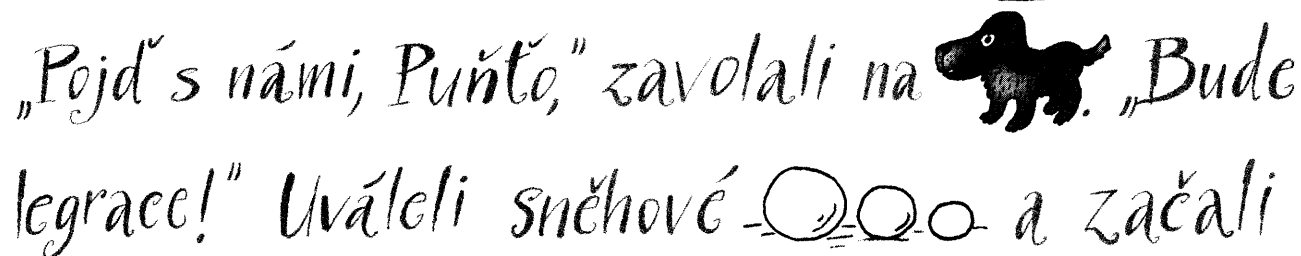 „Pojď s námi, Puňťo,“ zavolali na . „Bude
legrace!“ Uváleli sněhové a začali